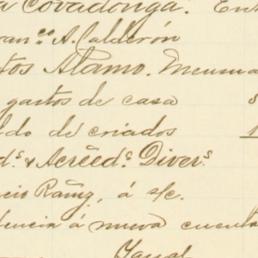 a Covadonga. Ent
ran.co A. Calderón
tos Alamo. Mensua
gastos de casa 8
ldo de criados 1
ds. & Acreeds. Divers.
cio Ramz, á s/c.
dencia á nueva cuenta
Igual